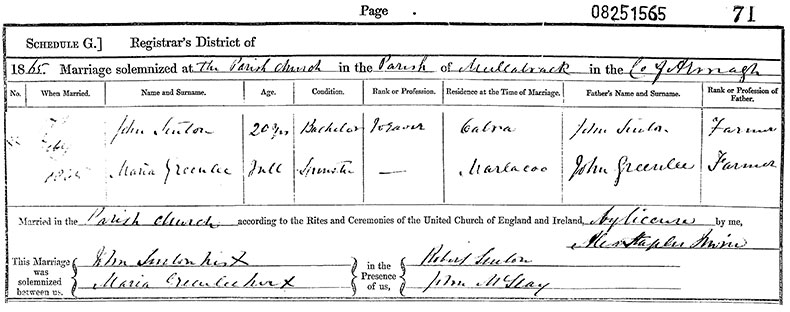 Page . 08251565 71
SCHEDULE G.] Registrar's District of
1865. Marriage solemnized at the Parish Church in the Parish of Mullabrack in the Co of Armagh
No. When Married. Name and Surname. Age. Condition. Rank or Profession. Residence at the Time of Marriage. Father's Name and Surname. Rank or Profession of Father.
John Sinton 20 yrs Bachelor Weaver Cabra John Sinton Farmer
Feby
1865 Maria Greenlee Full Spinster — Marlacoo John Greenlee Farmer
Married in the Parish Church according to the Rites and Ceremonies of the United Church of England and Ireland, by licence by me,
Alex Staples Irwin
This Marriage was solemnized between us, John Sinton his X
Maria Greenlee her X
in the Presence of us, Robert Sinton
John McStay